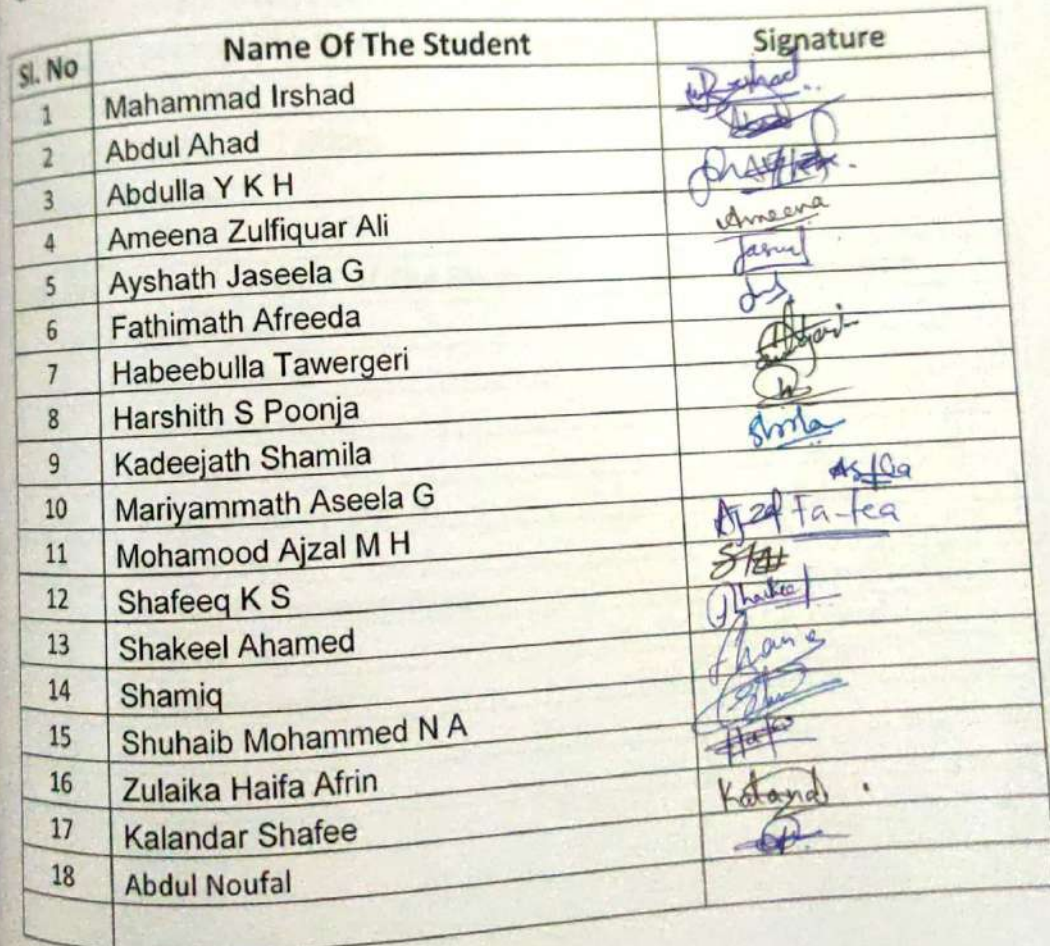 Sl. No Name Of The Student Signature
1 Mahammad Irshad
2 Abdul Ahad
3 Abdulla Y K H
4 Ameena Zulfiquar Ali Ameena
5 Ayshath Jaseela G
6 Fathimath Afreeda
7 Habeebulla Tawergeri
8 Harshith S Poonja
9 Kadeejath Shamila
10 Mariyammath Aseela G
11 Mohamood Ajzal M H Ajzal
12 Shafeeq K S
13 Shakeel Ahamed
14 Shamiq
15 Shuhaib Mohammed N A
16 Zulaika Haifa Afrin
17 Kalandar Shafee
18 Abdul Noufal